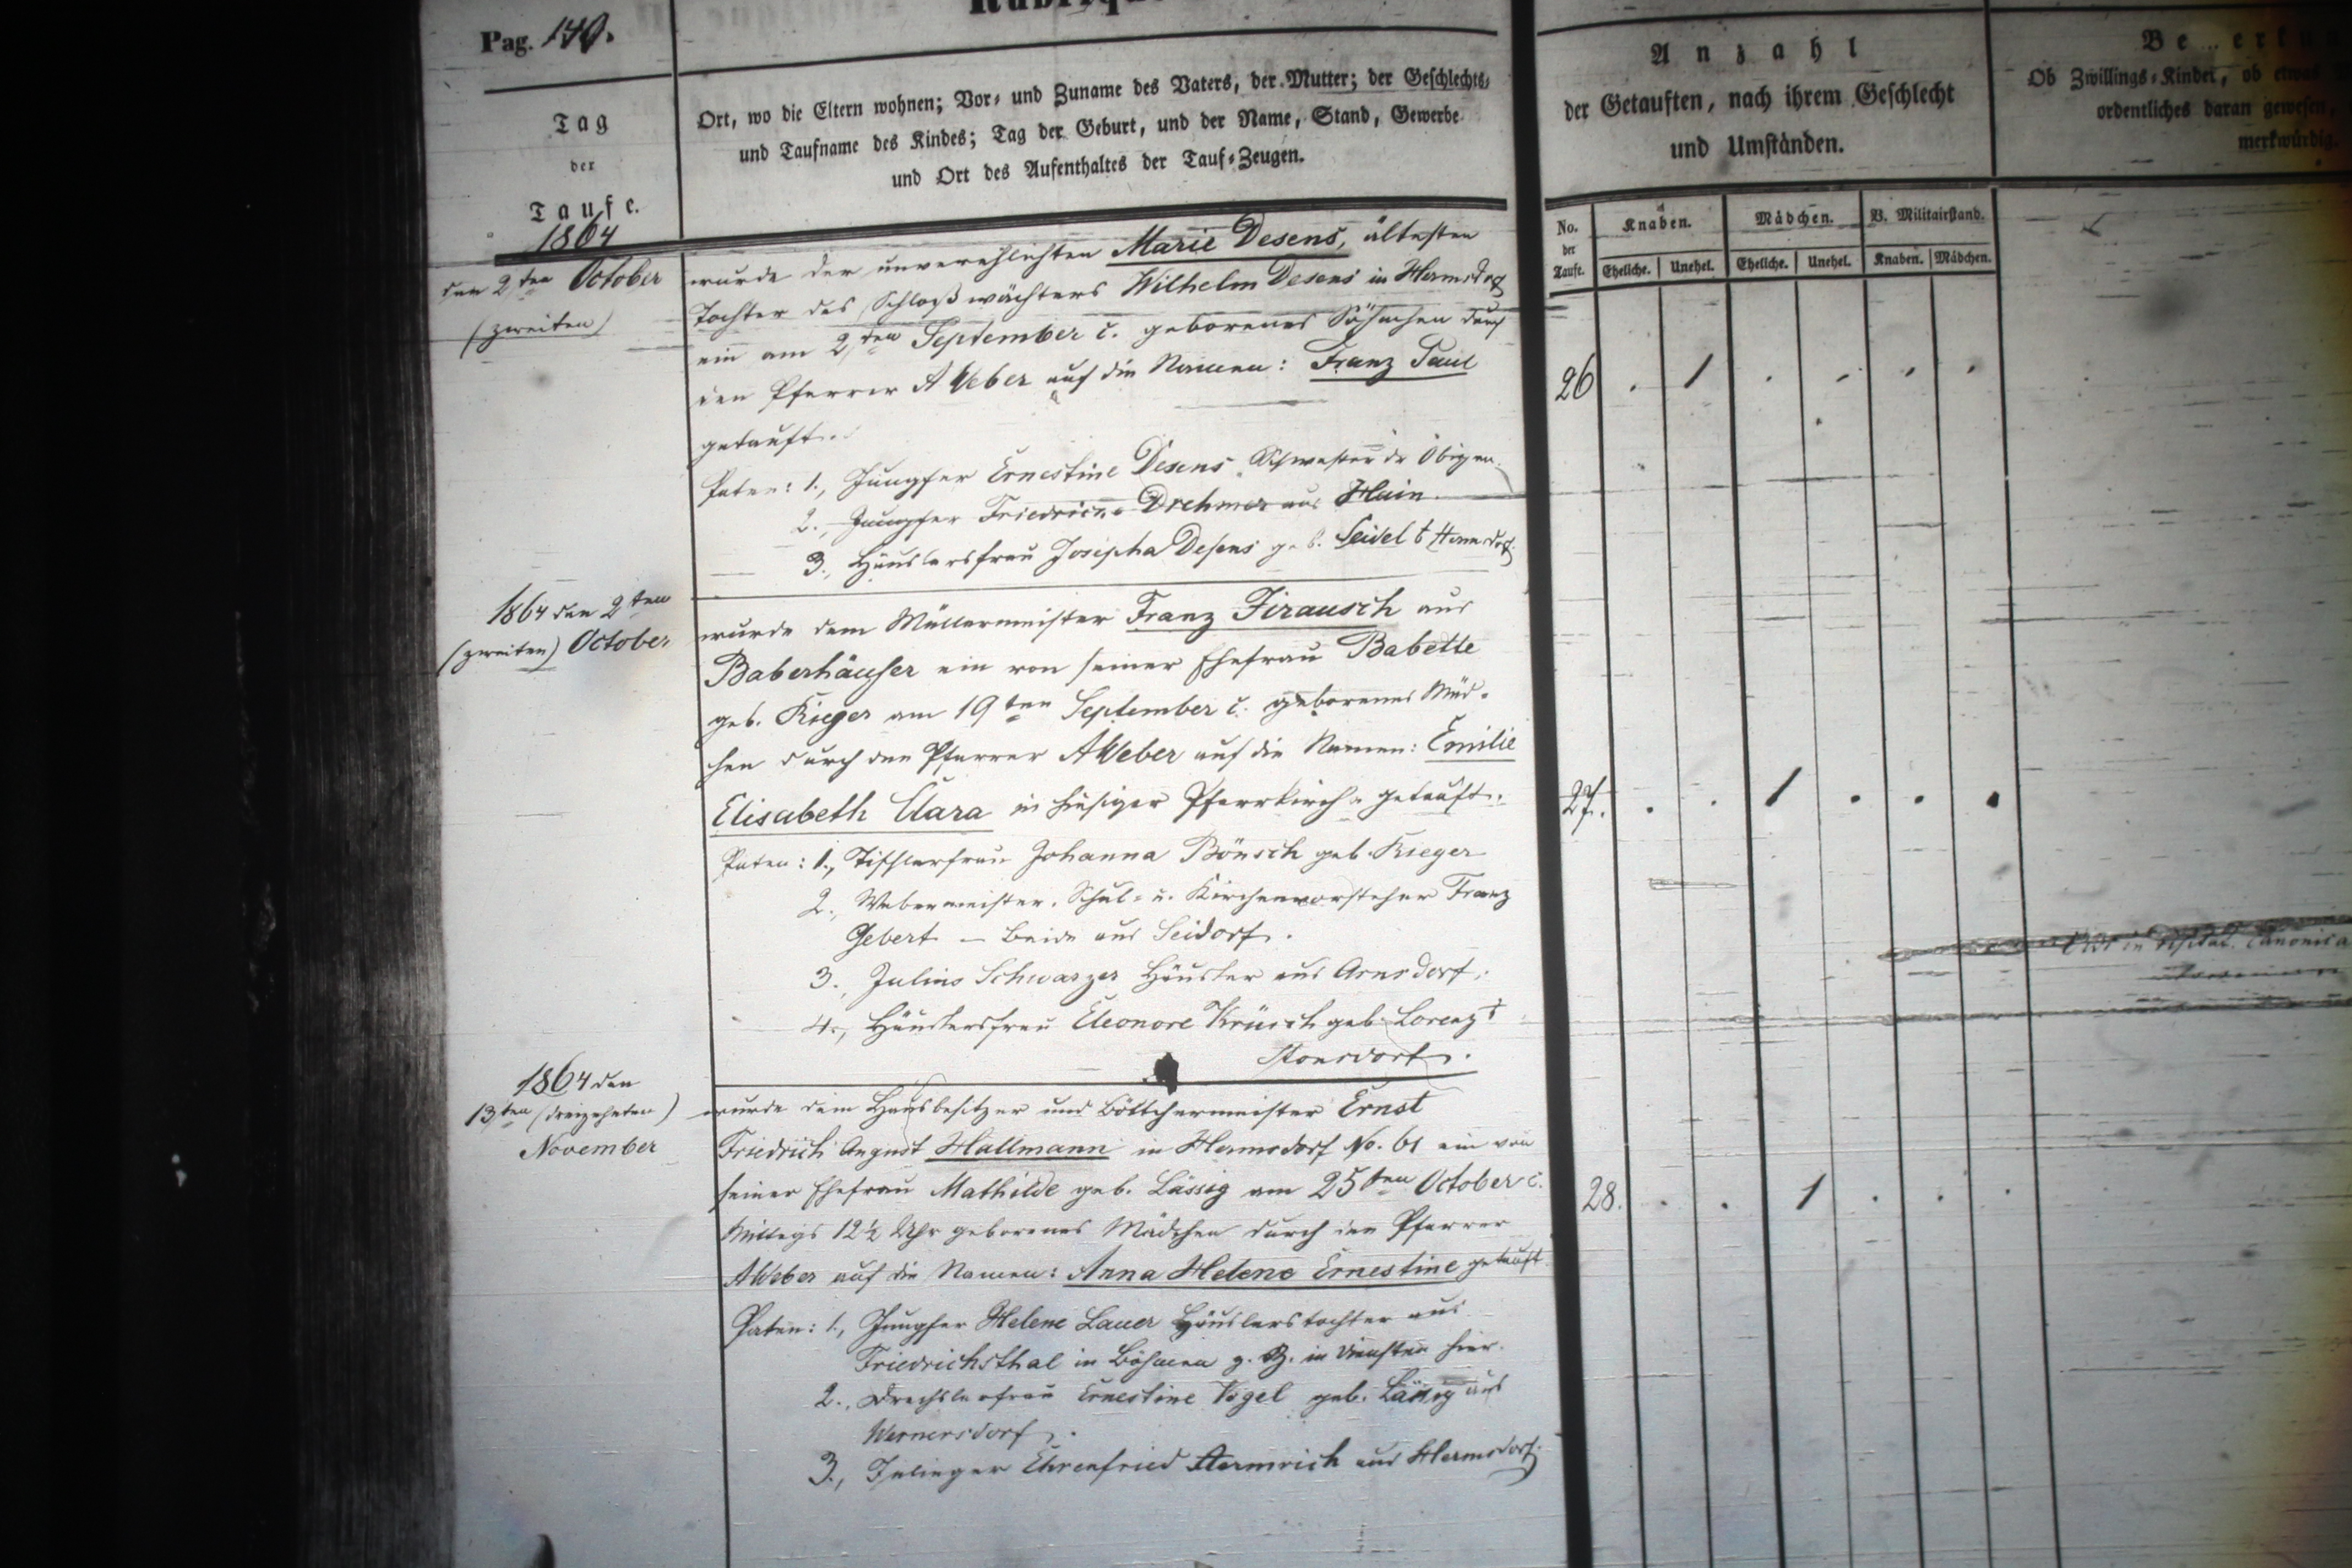 Pag. 140.
Tag
der
Taufe.
1864
Ort, wo die Eltern wohnen; Vor- und Zuname des Vaters, der Mutter; der Geschlechts-
und Taufname des Kindes; Tag der Geburt, und der Name, Stand, Gewerbe
und Ort des Aufenthaltes der Tauf-Zeugen.
Anzahl
der Getauften, nach ihrem Geschlecht
und Umständen.
Ob Zwillings-Kinder, ob etwas
ordentliches daran gewesen,
merkwürdig.
No. der Tauf.
Knaben.
Mädchen.
V. Militairstand.
Eheliche. Unehel. Eheliche. Unehel. Knaben. Mädchen.
den 2ten October
(zweiten)
wurde der unverehlichten Marie Desens, ältesten
Tochter des Schloßwächters Wilhelm Desens in Hermsdorf
ein am 2ten September c. geborenes Söhnchen durch
den Pfarrer A Weber auf die Namen: Franz Paul
getauft.
Paten: 1., Jungfer Ernestine Desens Schwester der Obigen.
2., Jungfer Friedricke Drehmer aus Hain.
3., Häuslersfrau Josepha Desens geb. Seidel Hermsdorf.
26 . 1 . . . .
1864 den 2ten
(zweiten) October
wurde dem Müllermeister Franz Firausch aus
Baberhäuser ein von seiner Ehefrau Babette
geb. Rieger am 19ten September c. geborenes Mäd-
chen durch den Pfarrer AWeber auf die Namen: Emilie
Elisabeth Clara in hiesiger Pfarrkirche getauft.
Paten: 1., Tischlerfrau Johanna Bönsch geb. Rieger
2., Webermeister, Schul- u. Kirchenvorsteher Franz
Gebert – beide aus Seidorf.
3., Julius Schwarzer Häusler aus Arnsdorf.
4., Häuslersfrau Eleonore Krüsch geb. Lorenz
Stonsdorf.
27. . . 1 . . .
1864 den
13ten (dreizehnten)
November
wurde dem Hausbesitzer und Böttchermeister Ernst
Friedrich August Hallmann in Hermsdorf No. 61 ein von
seiner Ehefrau Mathilde geb. Lässig am 25ten October c.
Mittags 12½ Uhr geborenes Mädchen durch den Pfarrer
AWeber auf die Namen: Anna Helene Ernestine getauft
Paten: 1., Jungfer Helene Lauer Häuslerstochter aus
Friedrichsthal in Böhmen z. Z. in Diensten hier.
2., Drechslerfrau Ernestine Vogel geb. Lässig aus
Wernersdorf.
3., Ehrenfried aus Hermsdorf.
28. . . 1 . . .